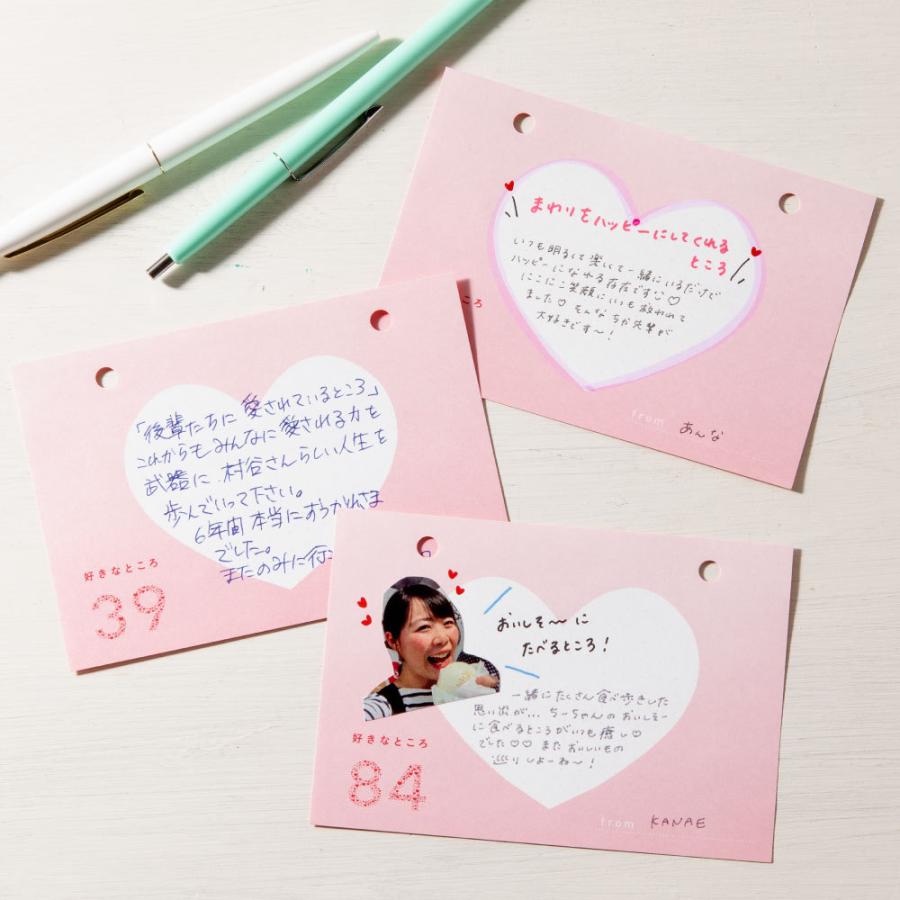 まわりをハッピーにしてくれる
ところ
いつも明るくて楽しくて一緒にいるだけで
ハッピーになれる存在です♡
にこにこ笑顔にいつも救われて
ました♡ そんな ちか先輩が
大好きです〜！
from あんな
ころ
「後輩たちに愛されているところ」
これからもみんなに愛される力を
武器に、村谷さんらしい人生を
歩んでいって下さい。
6年間本当におつかれさま
でした。
またのみに行こ
好きなところ
39
おいしそ〜に
たべるところ！
一緒にたくさん食べ歩きした
思い出が... ちーちゃんのおいしそー
に食べるところがいつも癒し♡
でした♡♡ またおいしいもの
巡りしよーね〜！
好きなところ
84
from KANAE